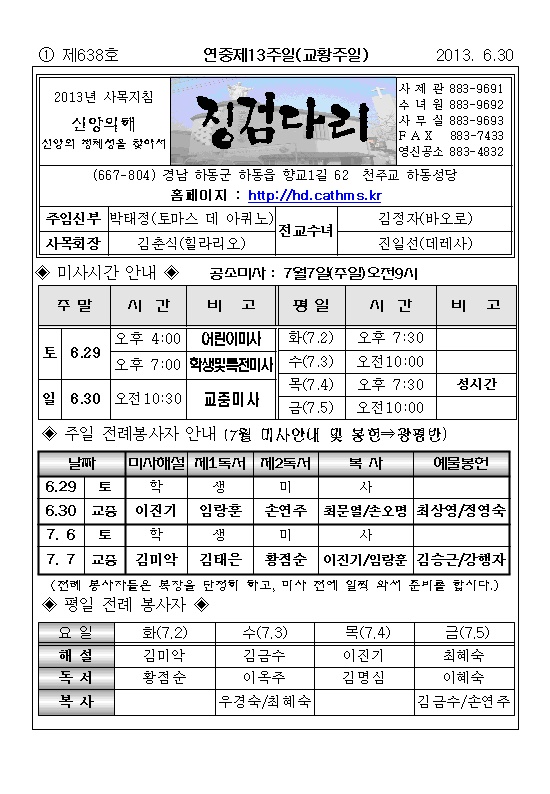 ① 제638호 연중제13주일(교황주일) 2013. 6.30
2013년 사목지침
신앙의해
신앙의 정체성을 찾아서
징검다리
사 제 관 883-9691
수 녀 원 883-9692
사 무 실 883-9693
F A X 883-7433
영신공소 883-4832
(667-804) 경남 하동군 하동읍 향교1길 62 천주교 하동성당
홈페이지 : http://hd.cathms.kr
주임신부 박태정(토마스 데 아퀴노) 전교수녀 김정자(바오로)
사목회장 김춘식(힐라리오) 진일선(데레사)
◈ 미사시간 안내 ◈ 공소미사 : 7월7일(주일)오전9시
주 말 시 간 비 고 평 일 시 간 비 고
토 6.29 오후 4:00 어린이미사 화(7.2) 오후 7:30
오후 7:00 학생및특전미사 수(7.3) 오전10:00
일 6.30 오전10:30 교중미사 목(7.4) 오후 7:30 성시간
금(7.5) 오전10:00
◈ 주일 전례봉사자 안내 (7월 미사안내 및 봉헌⇒광평반)
날짜 미사해설 제1독서 제2독서 복 사 예물봉헌
6.29 토 학 생 미 사
6.30 교중 이진기 임랑훈 손연주 최문열/손오명 최상영/정영숙
7. 6 토 학 생 미 사
7. 7 교중 김미악 김태은 황점순 이진기/임랑훈 김승근/강행자
(전례 봉사자들은 복장을 단정히 하고, 미사 전에 일찍 와서 준비를 합시다.)
◈ 평일 전례 봉사자 ◈
요 일 화(7.2) 수(7.3) 목(7.4) 금(7.5)
해 설 김미악 김금수 이진기 최혜숙
독 서 황점순 이옥주 김명심 이혜숙
복 사 우경숙/최혜숙 김금수/손연주